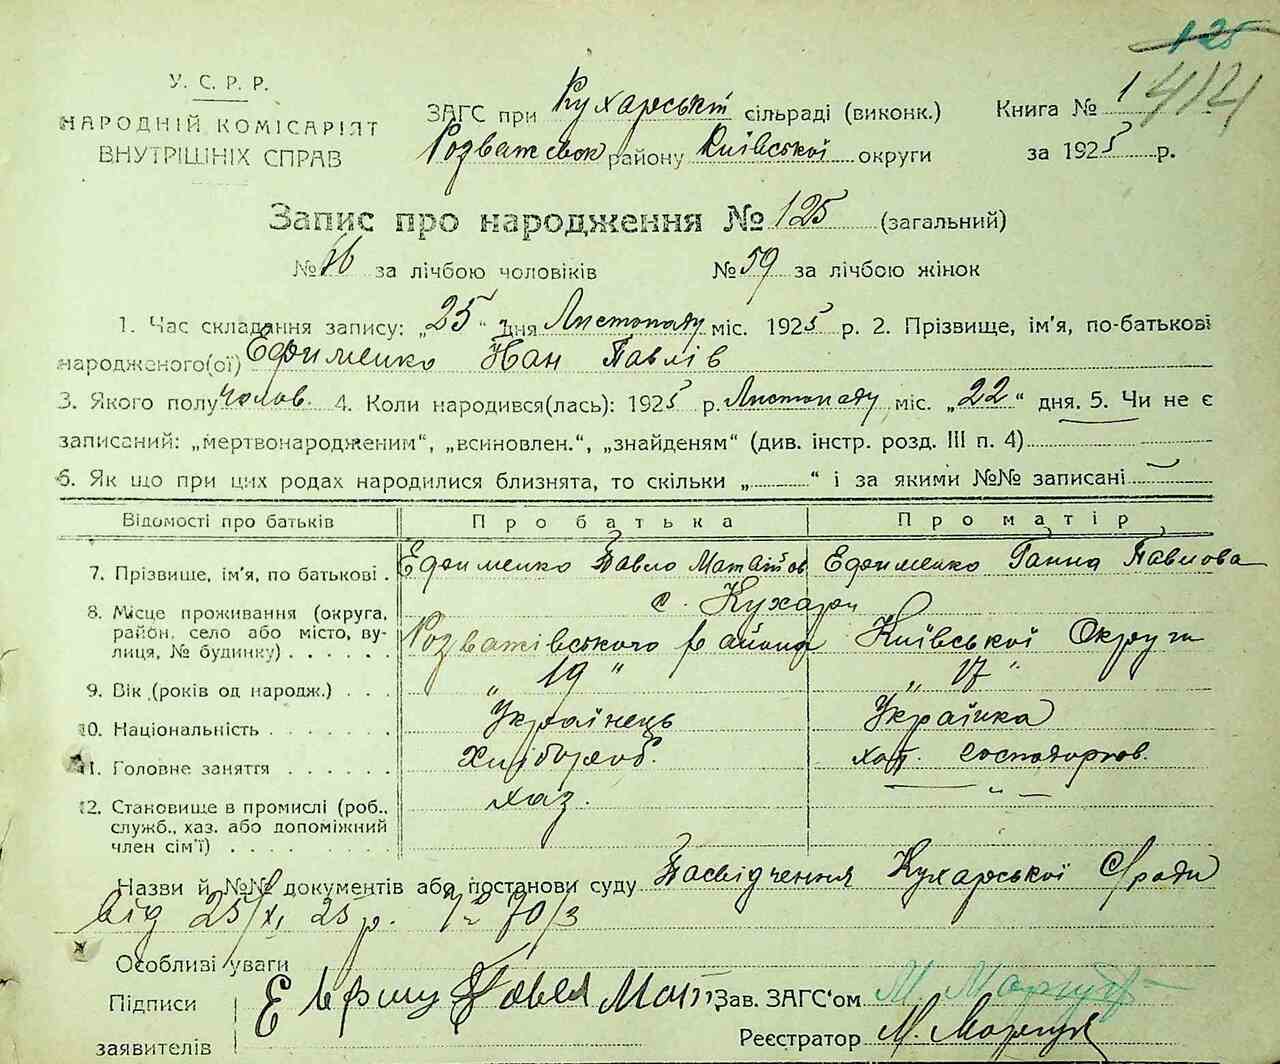 125
414
У. С. Р. Р.
НАРОДНІЙ КОМІСАРІЯТ
ВНУТРІШНІХ СПРАВ
ЗАГС при Кухарській сільраді (виконк.)
Розважевск району Київської округи
Книга № 1
за 1925 р.
Запис про народження № 125 (загальний)
№ 66 за лічбою чоловіків № 59 за лічбою жінок
1. Час складання запису: „25" дня Листопаду міс. 1925 р. 2. Прізвище, ім'я, по-батькові
народженого(ої) Ефименко Іван Павлів
3. Якого полу чолов. 4. Коли народився(лась): 1925 р. Листопаду міс. „22" дня. 5. Чи не є
записаний: „мертвонародженим", „всиновлен.", „знайденям" (див. інстр. розд. III п. 4)
6. Як що при цих родах народилися близнята, то скільки „ " і за якими №№ записані
Відомості про батьків Про батька Про матір
7. Прізвище, ім'я, по батькові . Ефименко Павло Матвійов Ефименко Ганна Павлова
8. Місце проживання (округа, с. Кухари
район, село або місто, ву- Розважівського району Київської Округи
лиця, № будинку) . . . . . .
9. Вік (років од народж.) . . . „ 19 " „ 17 "
10. Національність . . . . . . . Українець Українка
11. Головне заняття . . . . . . Хлібороб. хат. господартов.
12. Становище в промислі (роб., хаз. — " —
служб., хаз. або допоміжний
член сім'ї) . . . . . . . . .
Назви й №№ документів або постанови суду Посвідчення Кухарської С/ради
від 25/XI 25 р. № 70/3
Особливі уваги
Підписи
заявителів
Павел Мат
Зав. ЗАГС'ом М.
Реєстратор М.